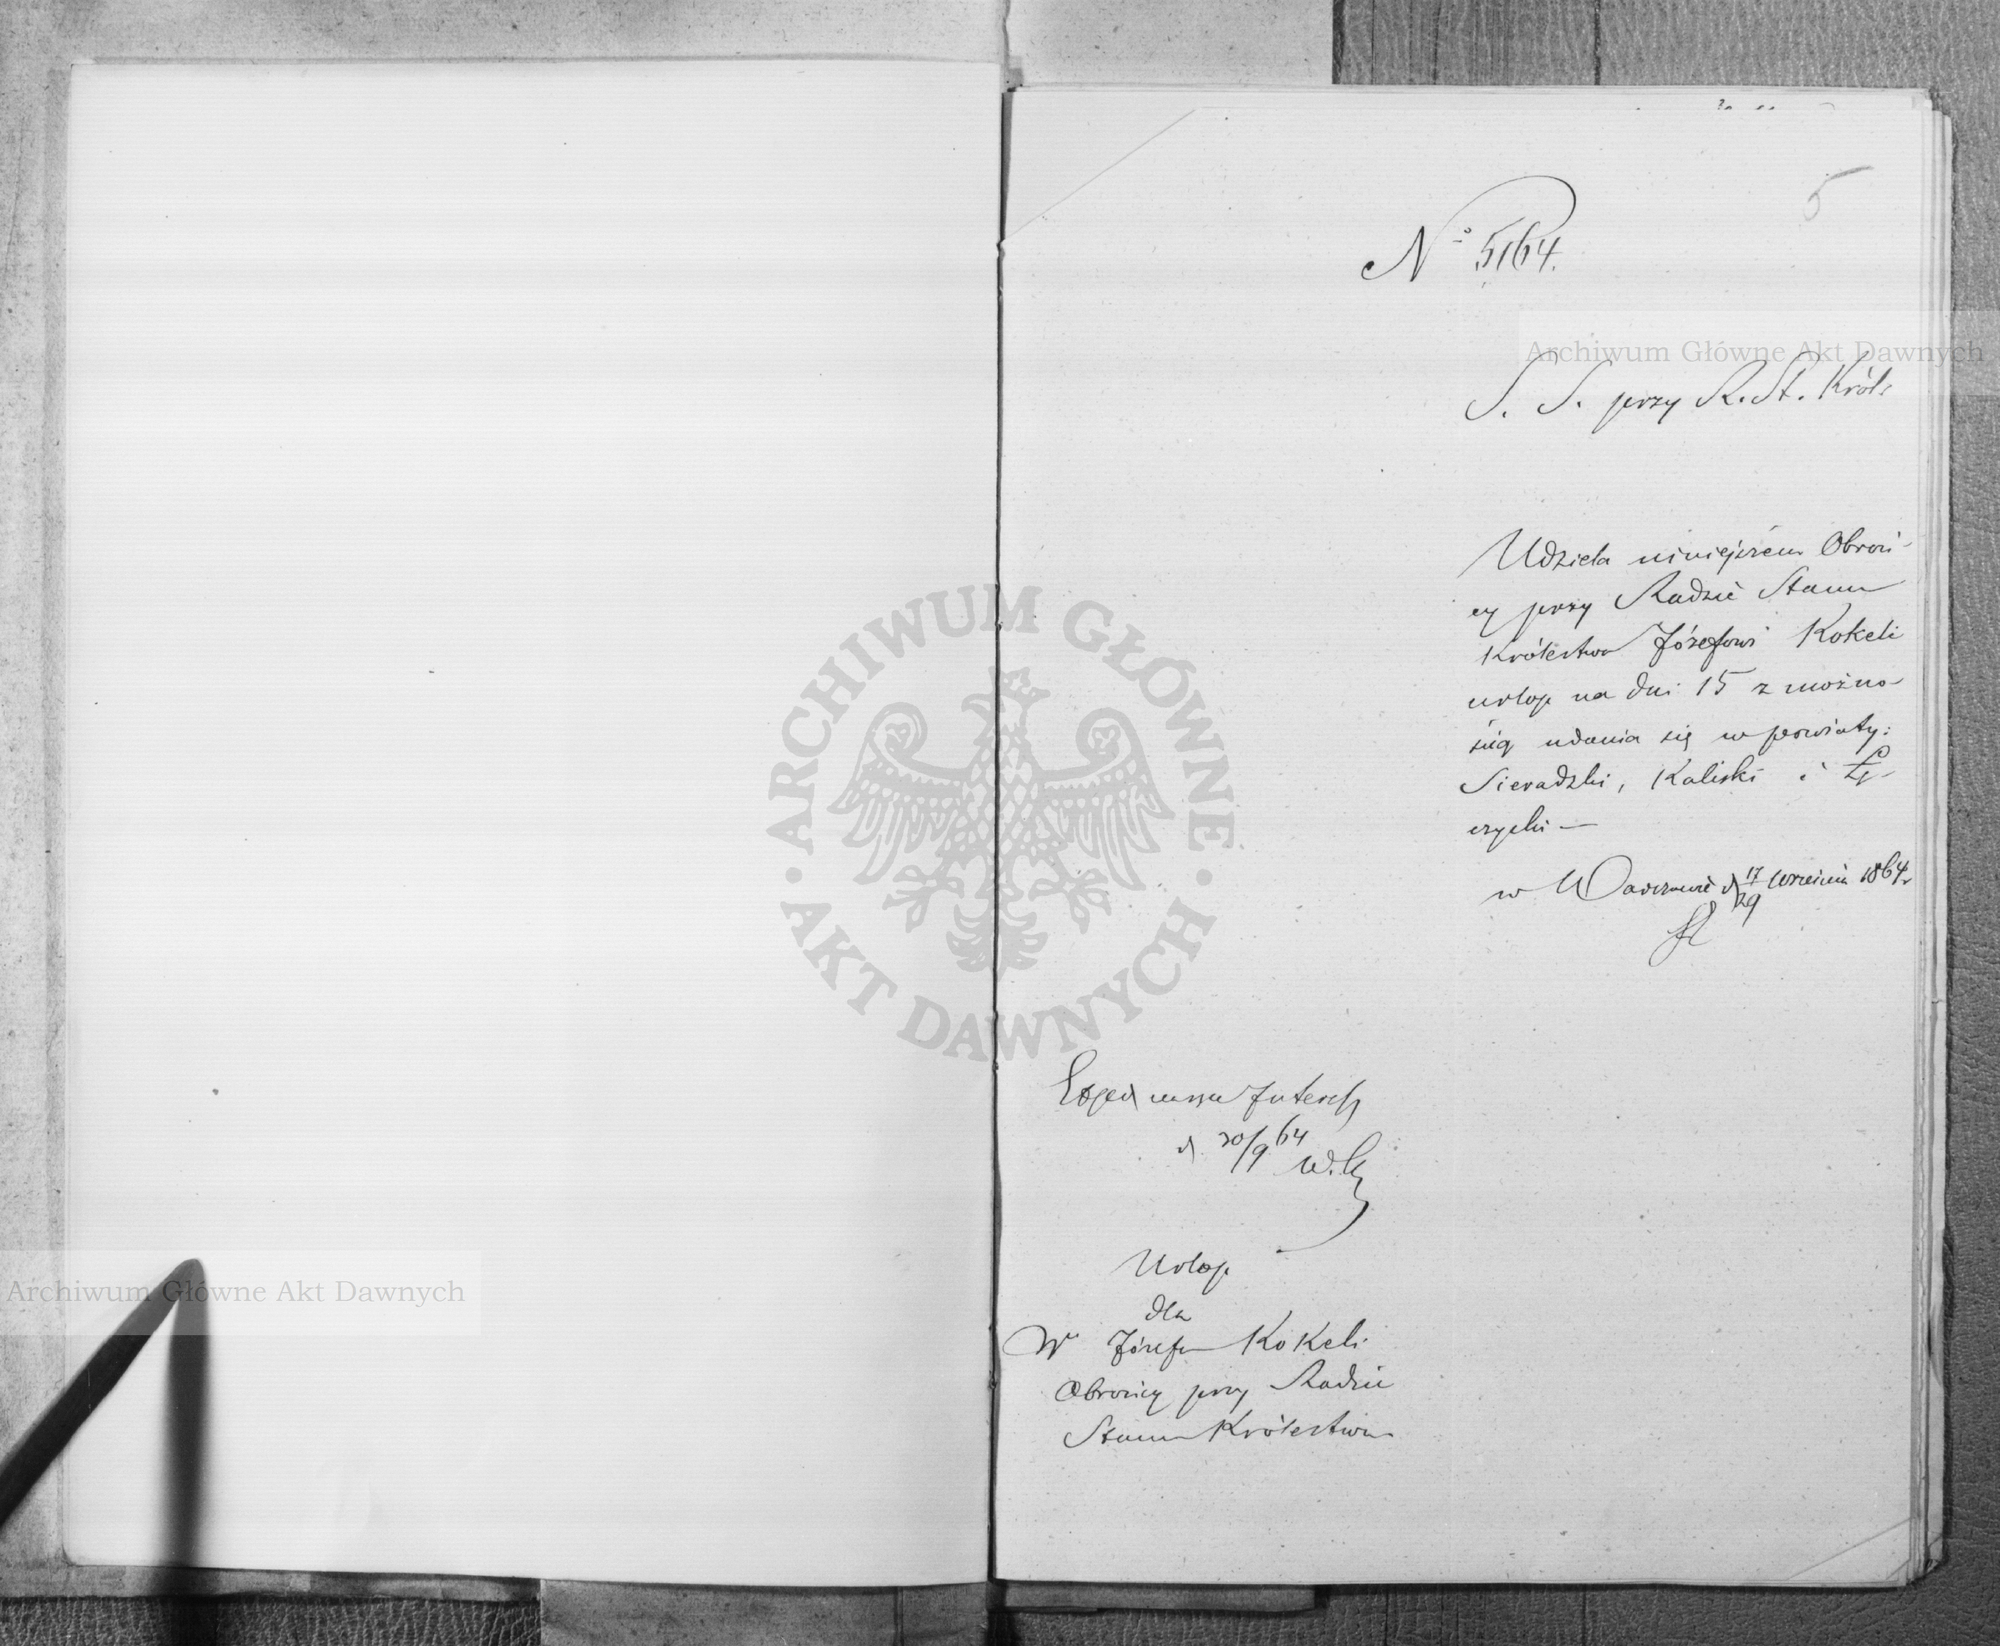 5
No 5164.
S. S. przy R. St. Król:
Udziela niniejszem Obroń-
cy przy Radzie Stanu
Królestwa Józefowi Kokeli
urlop na dni 15 z możno-
ścią udania się w powiaty:
Sieradzki, Kaliski i Łę-
czycki —
w Warszawie d 17/29 Września 1864 r
Urlop
dla
W Józefa Kokeli
Obrońcy przy Radzie
Stanu Królestwa
d 30/9 64
Archiwum Główne Akt Dawnych
Archiwum Główne Akt Dawnych
ARCHIWUM GŁÓWNE
AKT DAWNYCH